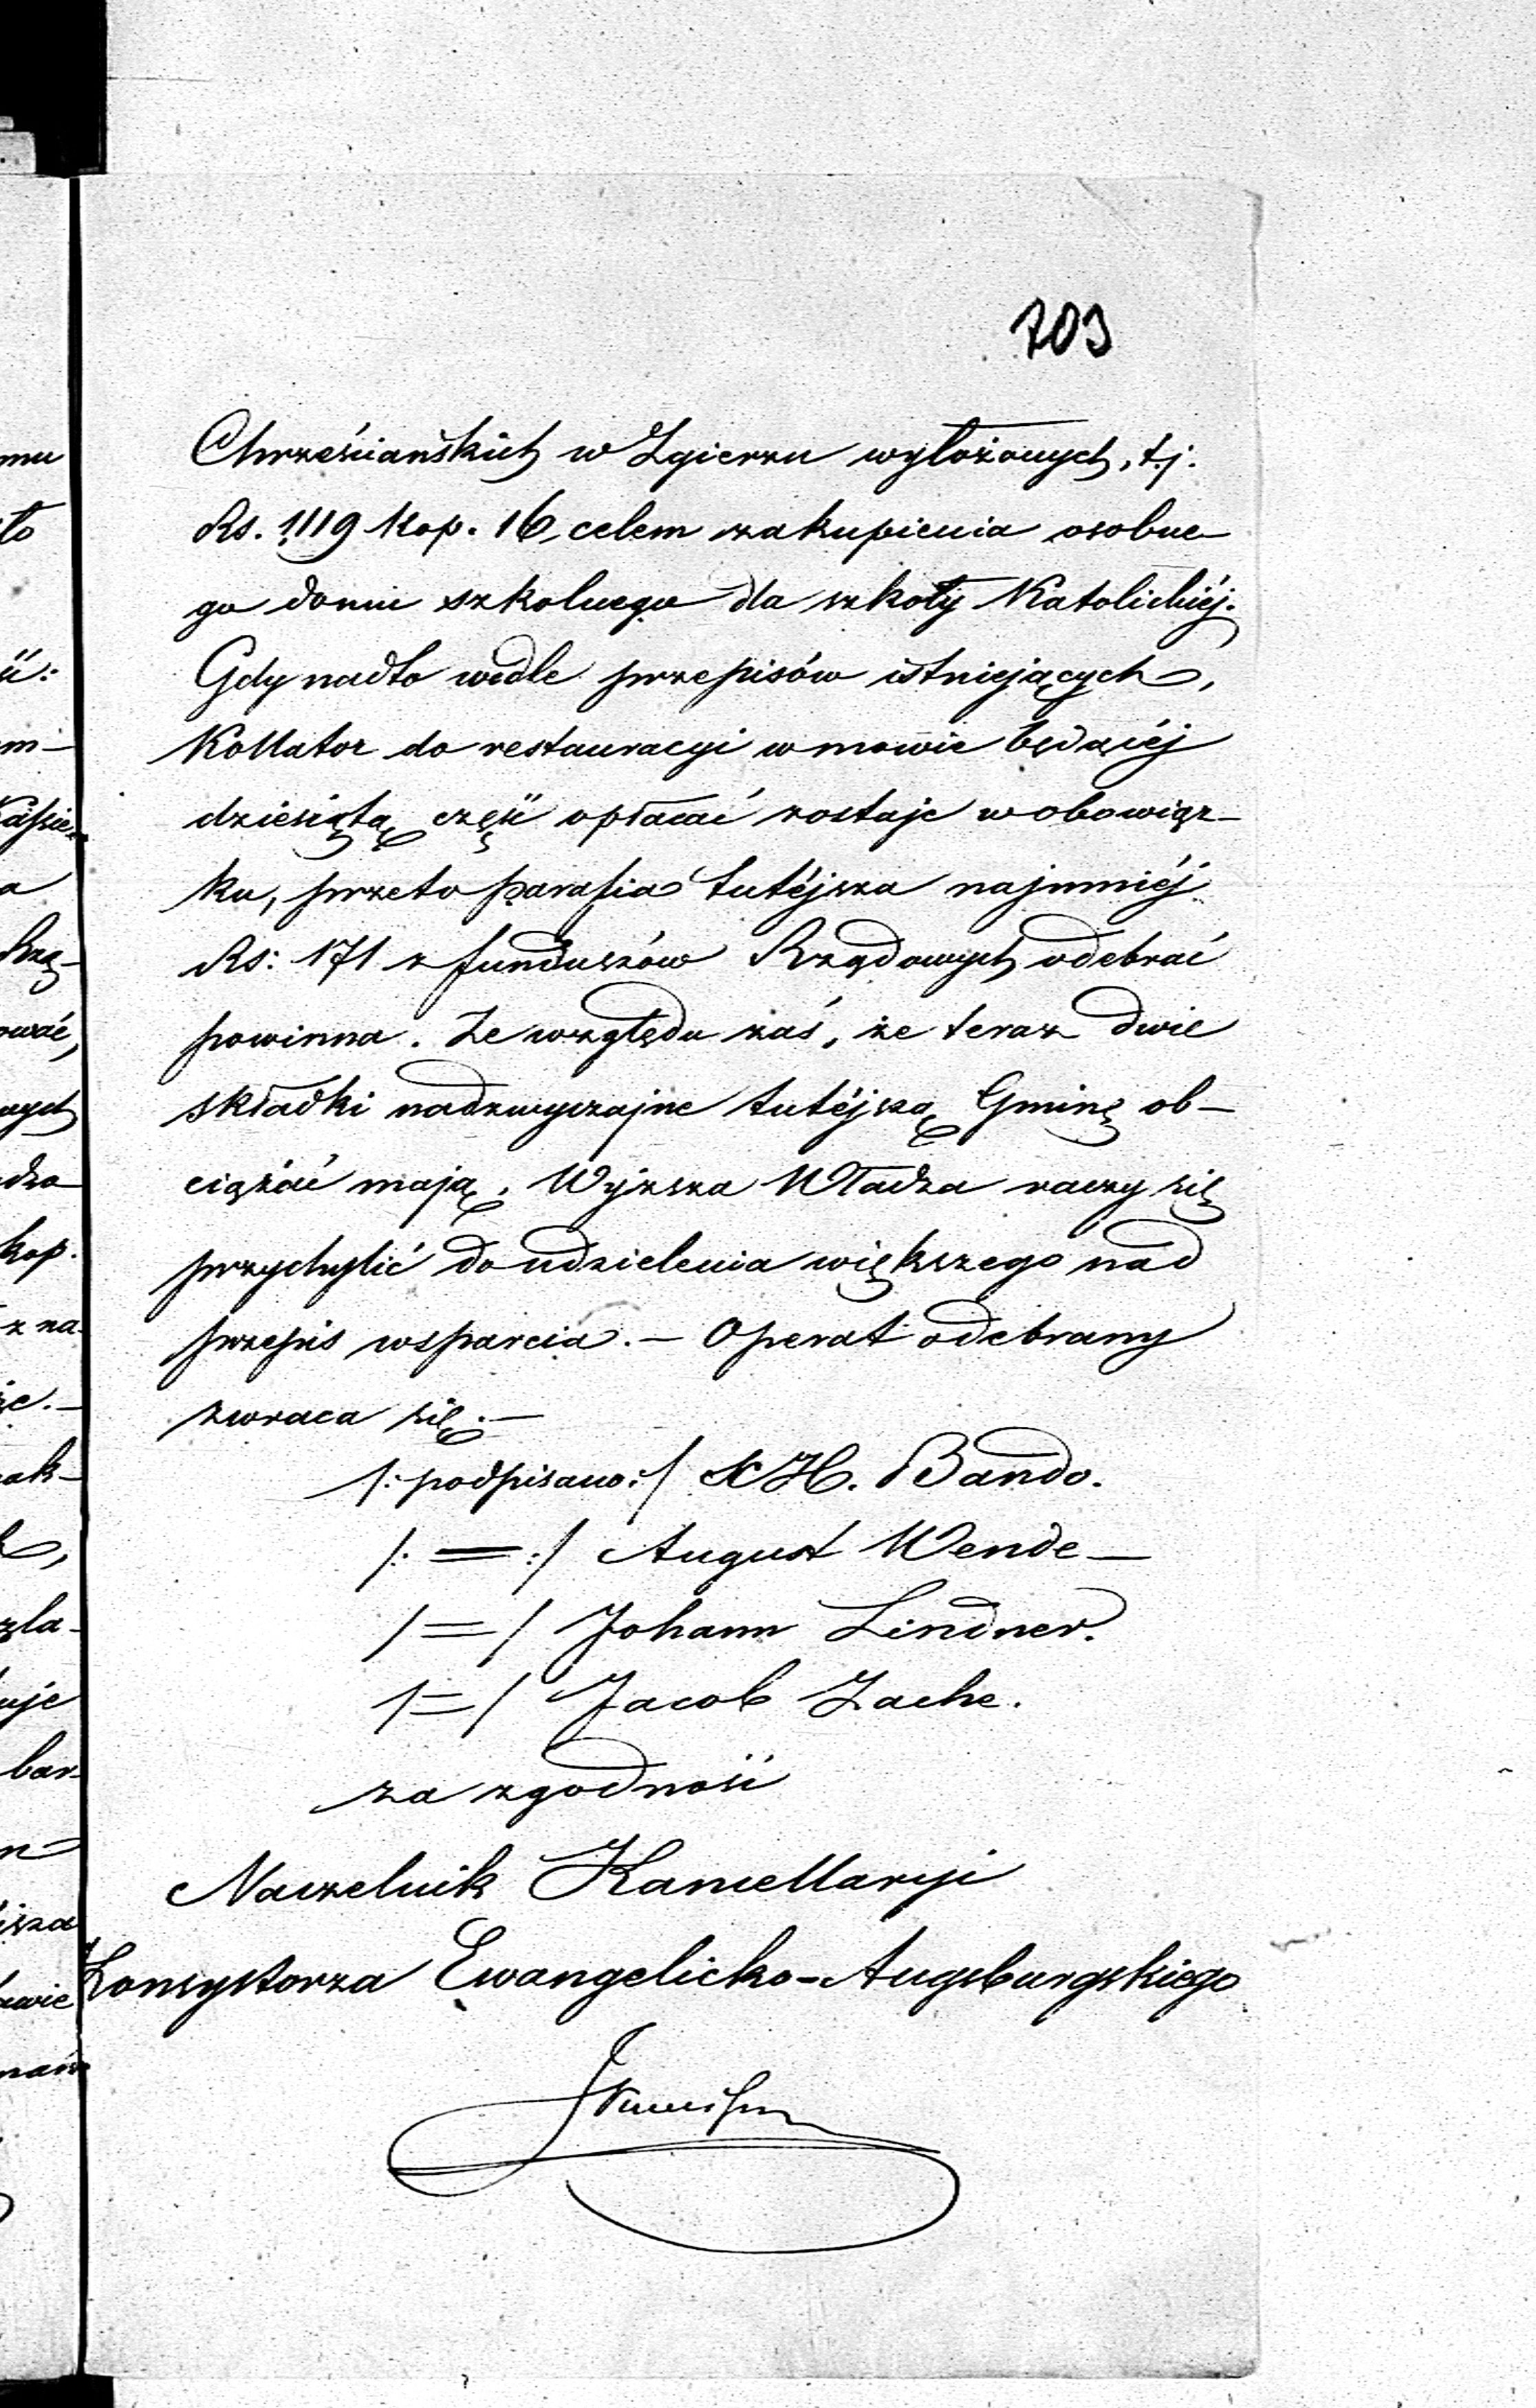 703
Chrześciańskich w Zgierzu wyłożonych, t.j.
Rs. 1119 kop. 16, celem zakupienia osobne-
go domu szkolnego dla szkoły Katolickiéj.
Gdy nadto wedle przepisów istniejących,
Kollator do restauracyi w mowie będącéj
dziesiątą część opłacać zostaje w obowiąz-
ku, przeto parafia tutéjsza najmniéj
Rs: 171 z funduszów Rządowych odebrać
powinna. Ze względu zaś, że teraz dwie
składki nadzwyczajne tutéjszą Gminę ob-
ciążać mają, Wyższa Władza raczy się
przychylić do udzielenia większego nad
przepis wsparcia. — Operat odebrany
zwraca się. —
/: podpisano :/ K H. Bando.
/: = :/ August Wende —
/ = / Johann Lindner.
/ = / Jacob Zache.
za zgodność
Naczelnik Kancellaryi
Konsystorza Ewangelicko-Augsburgskiego